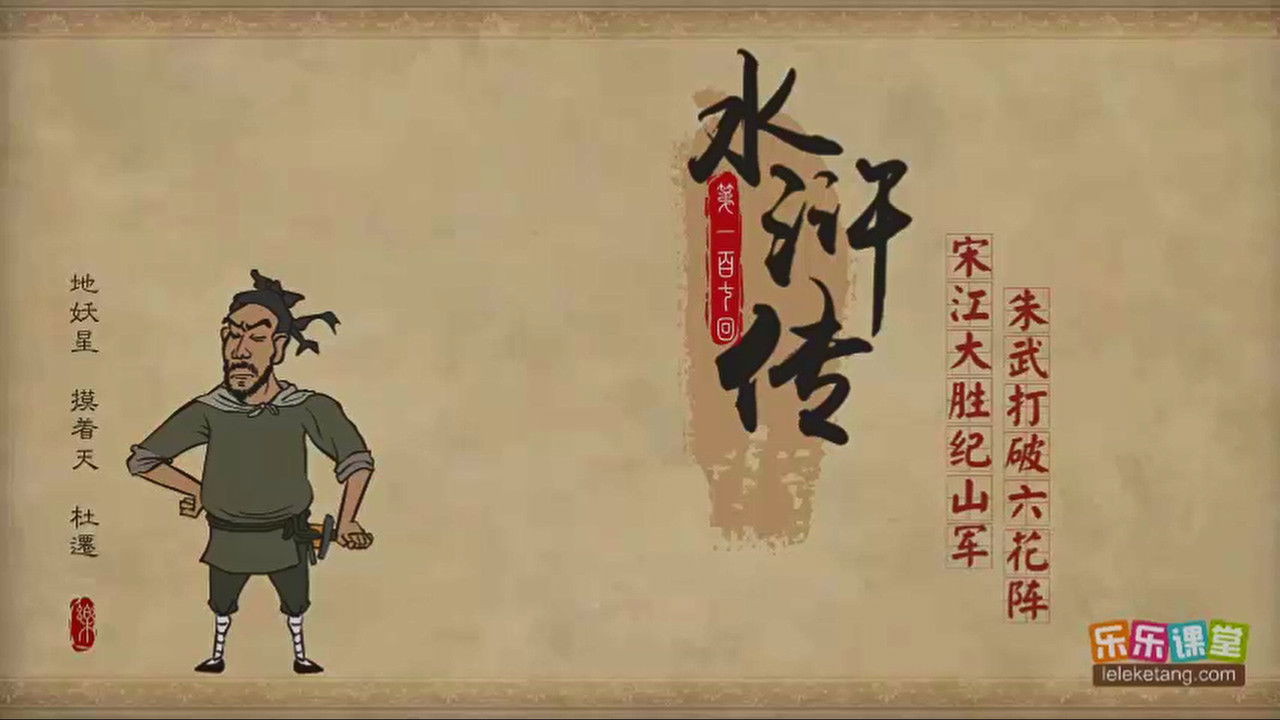 水浒传
第一百七回
宋江大胜纪山军
朱武打破六花阵
地妖星 摸着天 杜遷
樂
乐乐课堂
leleketang.com